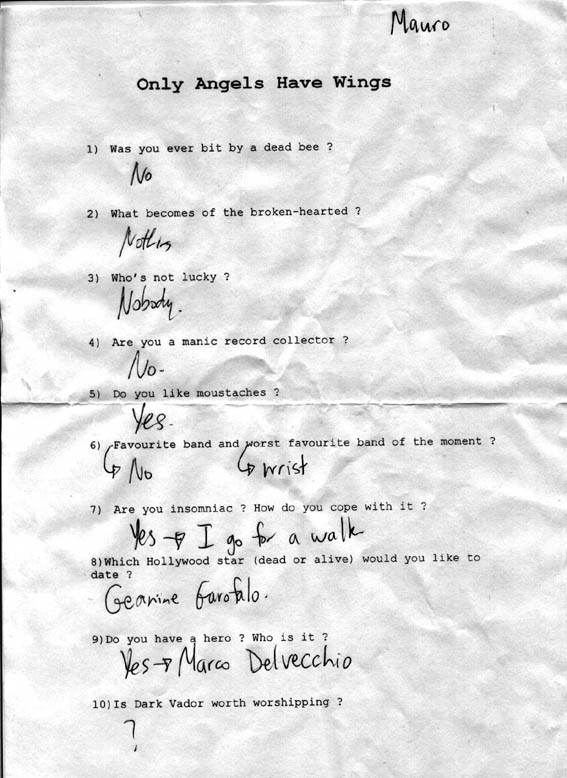 Mauro
Only Angels Have Wings
1) Was you ever bit by a dead bee ?
No
2) What becomes of the broken-hearted ?
3) Who's not lucky ?
Nobody.
4) Are you a manic record collector ?
No-
5) Do you like moustaches ?
Yes-
6) Favourite band and worst favourite band of the moment ?
No wrist
7) Are you insomniac ? How do you cope with it ?
Yes → I go for a walk
8)Which Hollywood star (dead or alive) would you like to
date ?
Geanine Garofalo.
9)Do you have a hero ? Who is it ?
Yes → Marco Delvecchio
10)Is Dark Vador worth worshipping ?
?